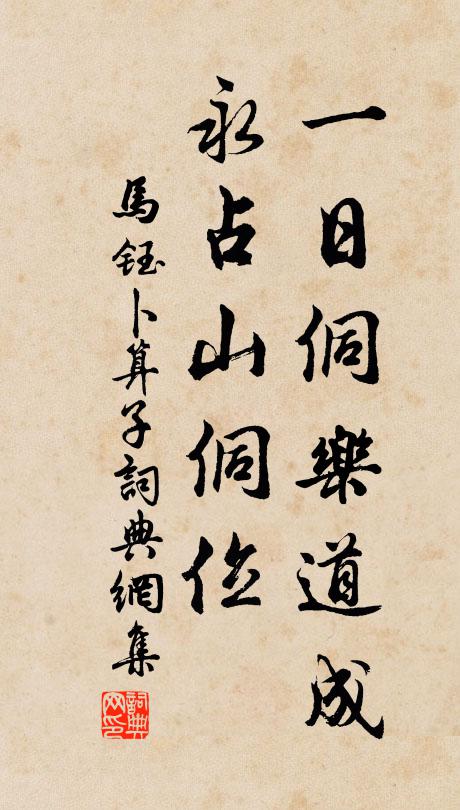 一日侗樂道成
永占山侗仚
馬鈺卜算子詞典網集
詞典网印